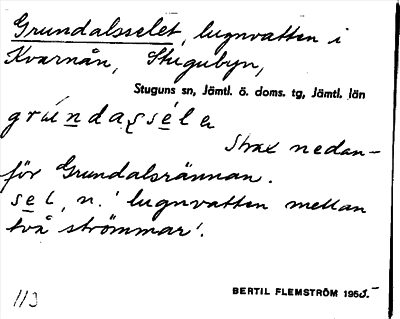 Grundalsselet, lugnvatten i
Kvarnån, Stugubyn,
Stuguns sn, Jämtl. ö. doms. tg, Jämtl. län
Strax nedan-
för Grundalsrännan.
sel, n. 'lugnvatten mellan
två strömmar'.
113 BERTIL FLEMSTRÖM 1965.